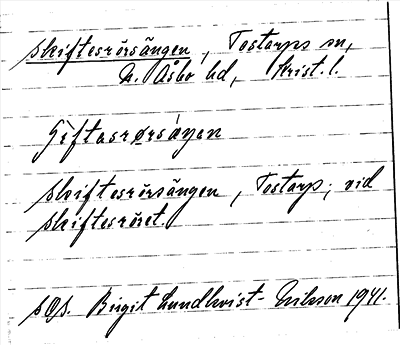 Skiftesrörsängen, Tostarps sn,
N. Åsbo hd, Krist. l.
Skiftesrörsängen, Tostarp; vid
skiftesröset.
SOS. Birgit Lundkvist-Eriksson 1941.